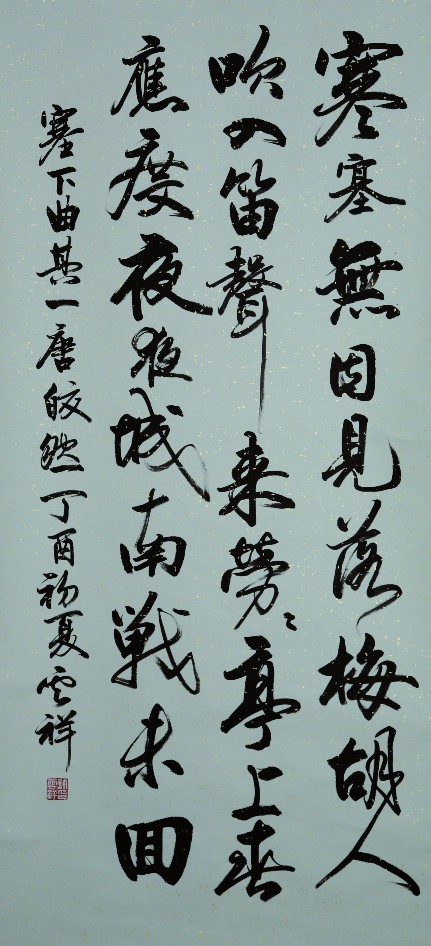 寒塞無因見落梅胡人
吹入笛聲来勞〻亭上春
應度夜夜城南戰未回
塞下曲其一唐皎然丁酉初夏云祥